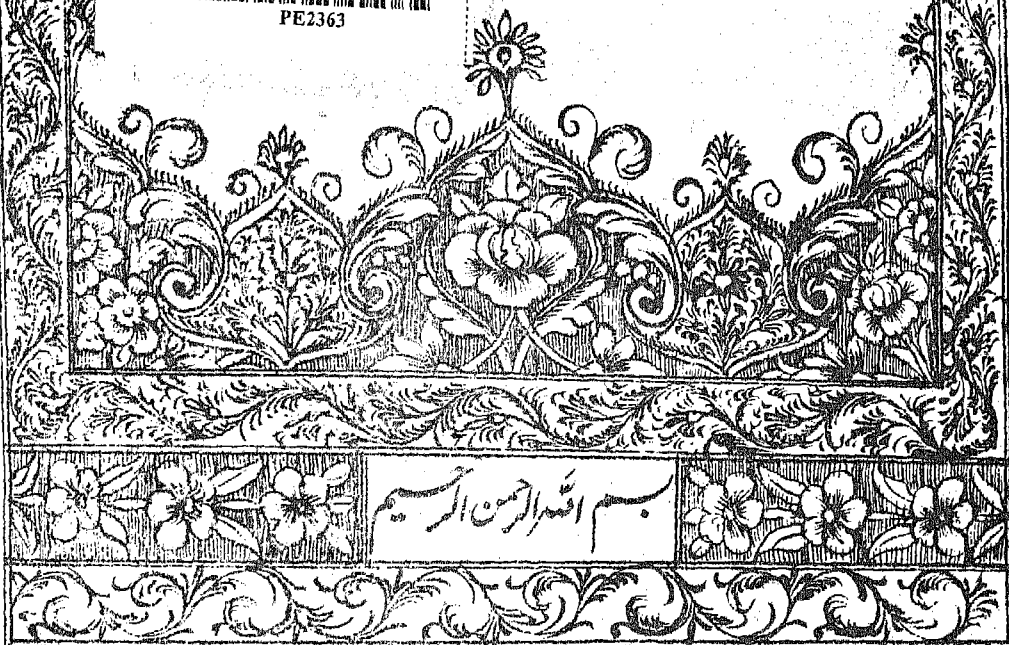 PE2363
بسم الله الرحمن الرحیم